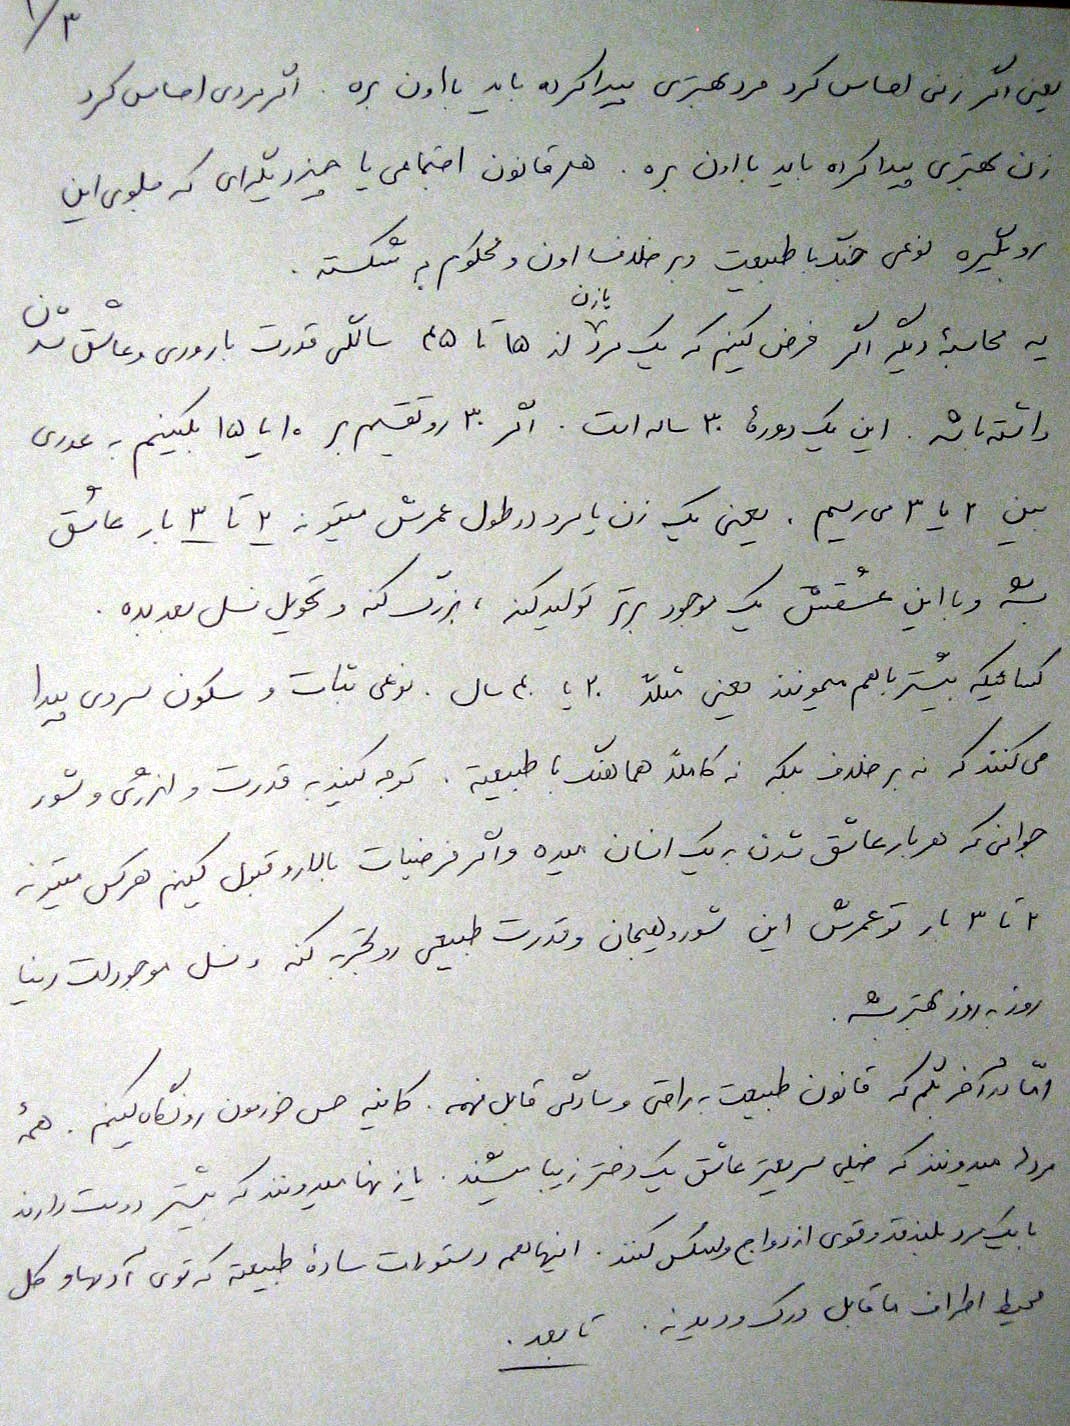 ۳/۱
یعنی اگر زنی احساس کرد مرد بهتری پیدا کرده باید با اون بره . اگر مردی احساس کرد
زن بهتری پیدا کرده باید با اون بره . هر قانون اجتماعی یا چیز دیگرای که جلوی این
رو بگیره نوعی جنگ با طبیعت و بر خلاف اون و محکوم به شکسته .
یه محاسبهٔ دیگر اگر فرض کنیم که یک مرد یا زن از ۱۵ تا ۴۵ سالگی قدرت باروری و عاشق شدن
داشته باشه . این یک دورهٔ ۳۰ ساله است . اگر ۳۰ رو تقسیم بر ۱۰ یا ۱۵ بکنیم به عددی
بین ۲ یا ۳ می رسیم . یعنی یک زن یا مرد در طول عمرش میتونه ۲ تا ۳ بار عاشق
بشه و با این عشقش یک موجود برتر تولید کنه ، بزرگ کنه و تحویل نسل بعد بده .
کسانیکه بیشتر با هم میمونند یعنی مثلاً ۲۰ یا ۴۰ سال . نوعی ثبات و سکون سردی پیدا
می کنند که نه بر خلاف بلکه نه کاملاً هماهنگ با طبیعته . توجه کنید به قدرت و انرژی و شور
جوانی که هر بار عاشق شدن به یک انسان میده و اگر فرضیات بالا رو قبول کنیم هر کس میتونه
۲ تا ۳ بار تو عمرش این شور و هیجان و قدرت طبیعی رو تجربه کنه و نسل موجودات دنیا
روز به روز بهتر بشه .
امّا در آخر بگم که قانون طبیعت به راحتی و سادگی قابل فهمه . کافیه حس خودمون رو نگاه کنیم . همهٔ
مردا میدونند که خیلی سریعتر عاشق یک دختر زیبا میشند . یا زنها میدونند که بیشتر دوست دارند
با یک مرد بلند قد و قوی ازدواج و سکس کنند . اینها همه دستورات سادهٔ طبیعته که توی آدمها و کل
محیط اطراف ما قابل درک و دیدنه . تا بعد .